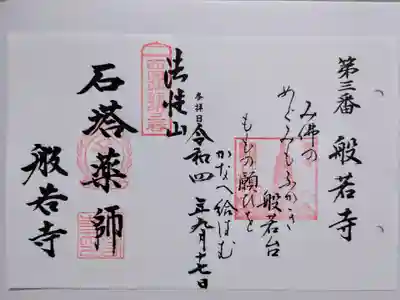 第三番 般若寺
み佛の
めぐみもふかき
般若台
もも〻の願ひを
かなへ給はむ
参拝日 令和四年九月十七日
法性山
石塔薬師
般若寺